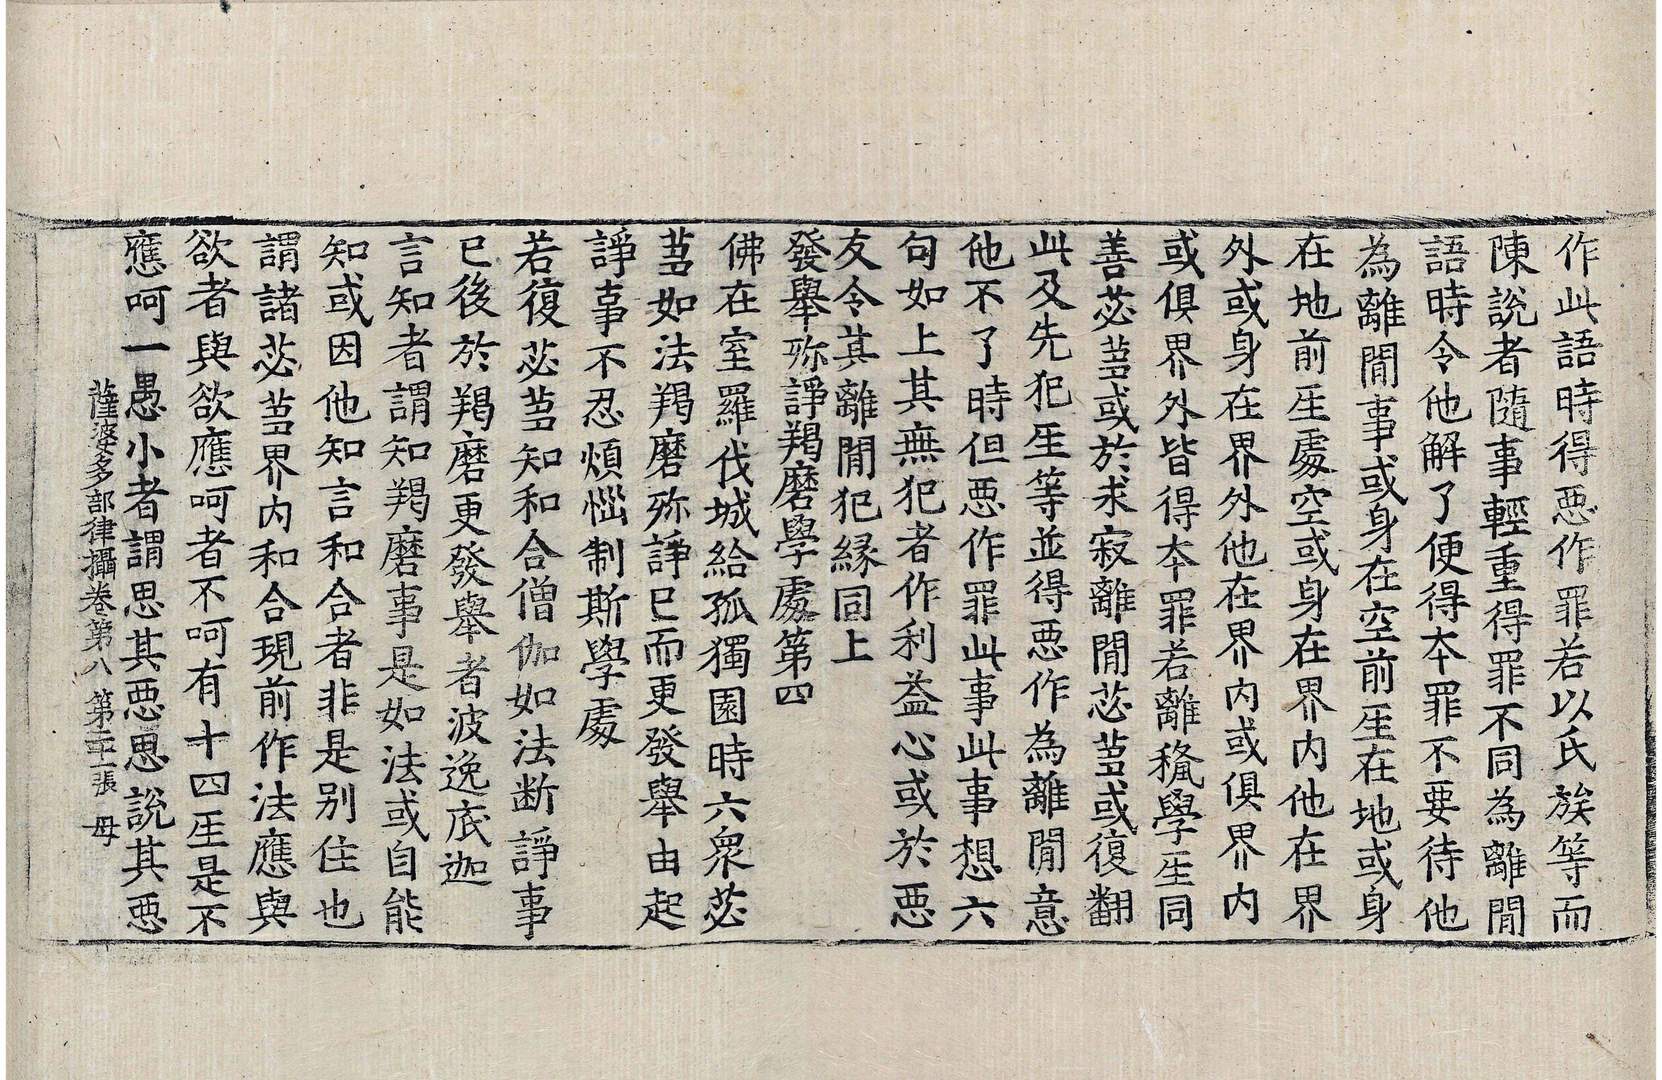 作此語時得惡作罪若以氏族等而
陳說者隨事輕重得罪不同為離間
語時令他解了便得本罪不要待他
為離間事或身在空前在地或身
在地前在處空或身在界內他在界
外或身在界外他在界內或俱界內
或俱界外皆得本罪若離求學在同
善苾蒭或於求寂離間苾蒭或復翻
此及先犯在等並得惡作為離間意
他不了時但惡作罪此事此事想六
句如上其無犯者作利益心或於惡
友令其離間犯緣同上
發舉殄諍羯磨學處第四
佛在室羅伐城給孤獨園時六眾苾
蒭如法羯磨殄諍已而更發舉由起
諍事不忍煩惱制斯學處
若復苾蒭知和合僧伽如法斷諍事
已後於羯磨更發舉者波逸底迦
言知者謂知羯磨事是如法或自能
知或因他知言和合者非是別住也
謂諸苾蒭界內和合現前作法應與
欲者與欲應呵者不呵有十四在是不
應呵一愚小者謂思其惡思說其惡
薩婆多部律攝卷第八 第 張 母